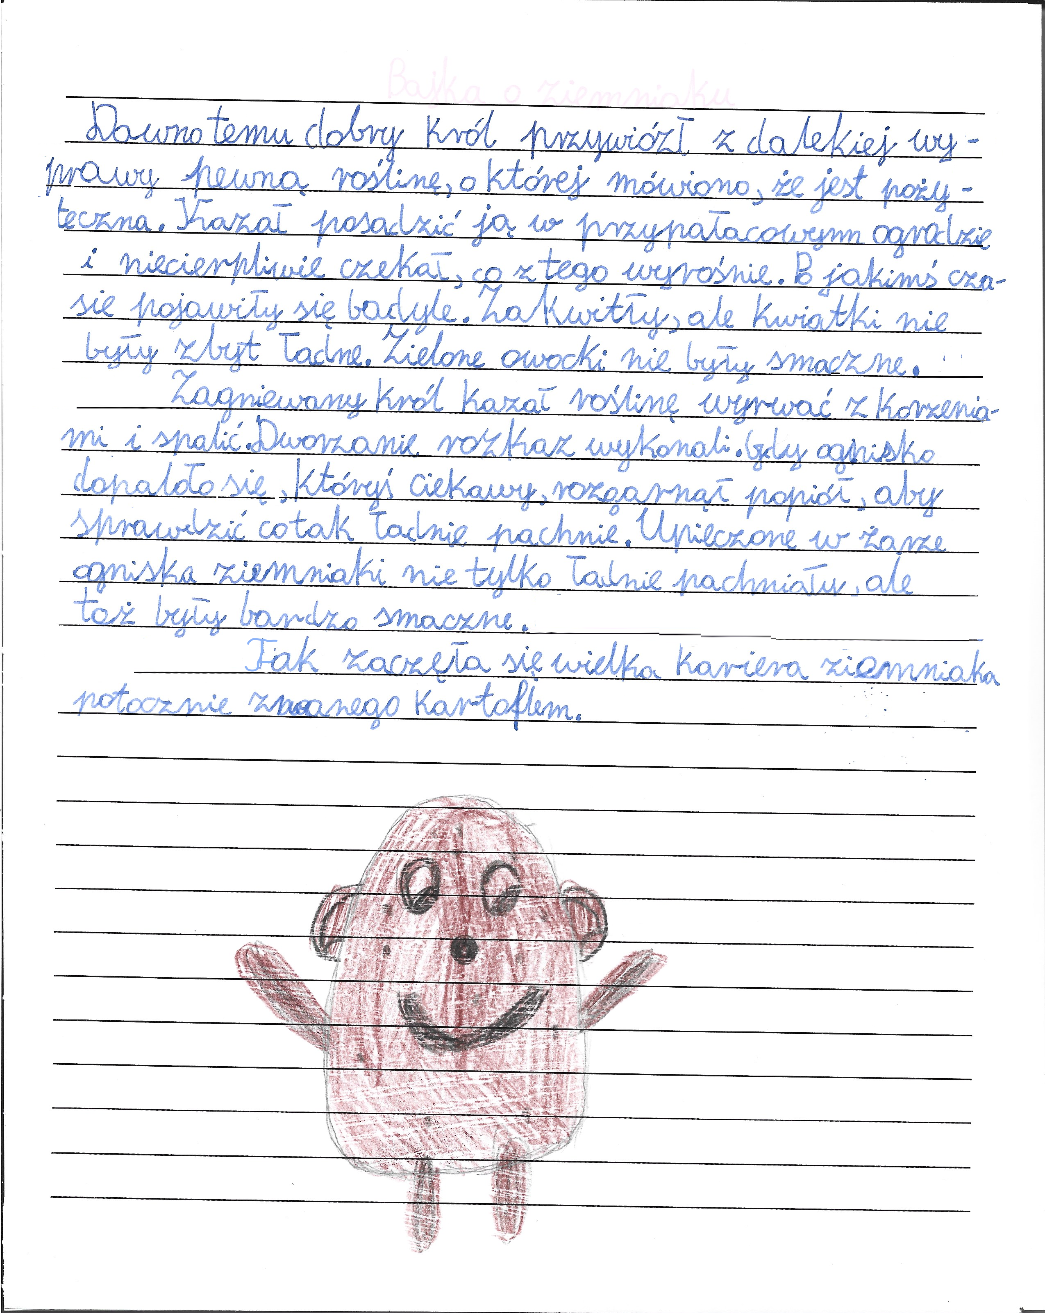 Bajka o ziemniaku
Dawno temu dobry król przywiózł z dalekiej wy-
prawy pewną roślinę, o której mówiono, że jest poży-
teczna. Kazał posadzić ją w przypałacowym ogrodzie
i niecierpliwie czekał, co z tego wyrośnie. P jakimś cza-
sie pojawiły się badyle. Zakwitły, ale kwiatki nie
były zbyt ładne. Zielone owocki nie były smaczne.
Zagniewany król kazał roślinę wyrwać z korzenia-
mi i spalić. Dworzanie rozkaz wykonali. Gdy ognisko
dopaldło się, któryś ciekawy, rozgarnął popiół, aby
sprawdzić co tak ładnie pachnie. Upieczone w żarze
ogniska ziemniaki nie tylko ładnie pachniały, ale
toż były bardzo smaczne.
Tak zaczęła się wielka kariera ziemniaka
potocznie zwanego kartoflem.